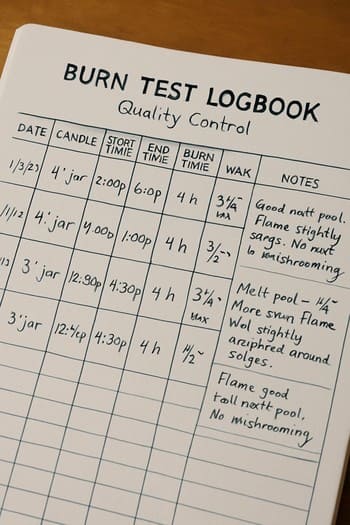 BURN TEST LOGBOOK
Quality Control
DATE CANDLE STORT TIMIE END TIME BURN TIMIE WAK NOTES
1/3/23 4' jar 2:00p 6:0p 4 h 3¼"
Good natt pool.
Flame stightly
sangs. No
mishrooming
4' jar 4.00p 1:00p 4 h 3/2~
3' jar 12:90p 4:30p 4 h 3¼"
Melt pool –
More svun Flame
Wel stightly
around
solges.
3' jar 4:30p 4 h
Flame good
tall nextt pool.
No mishrooming